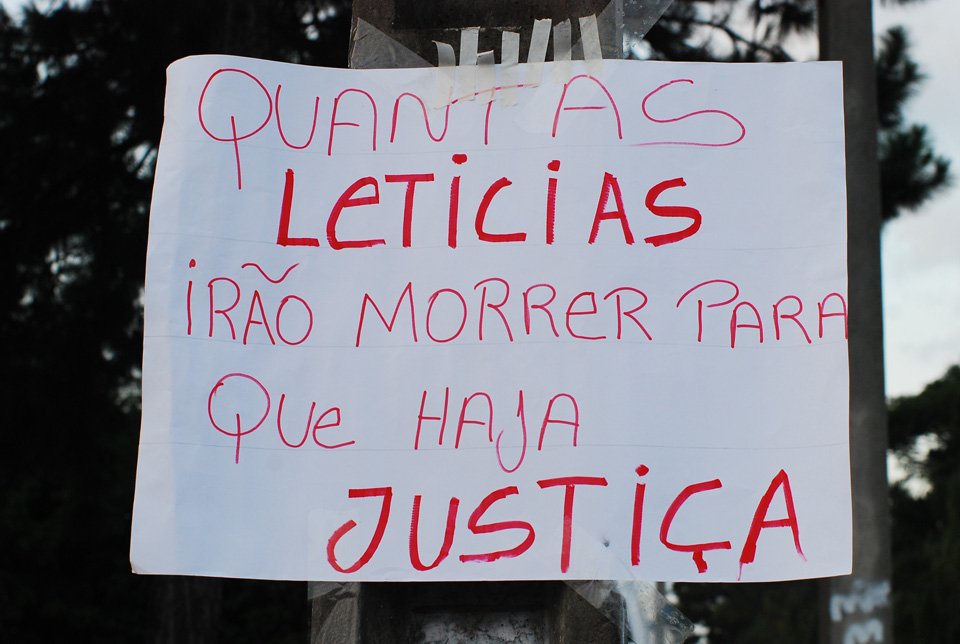 QUANTAS
LETICIAS
IRÃO MORRER PARA
QUE HAJA
JUSTIÇA